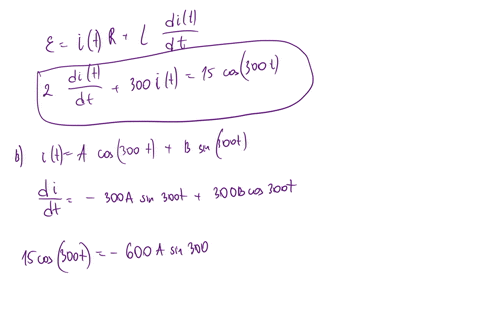 ε = i(t) R + L di(t)/dt
2 di(t)/dt + 300 i(t) = 15 cos(300t)
b) i(t) = A cos(300t) + B sin(300t)
di/dt = - 300A sin 300t + 300B cos 300t
15 cos(300t) = - 600 A sin 300